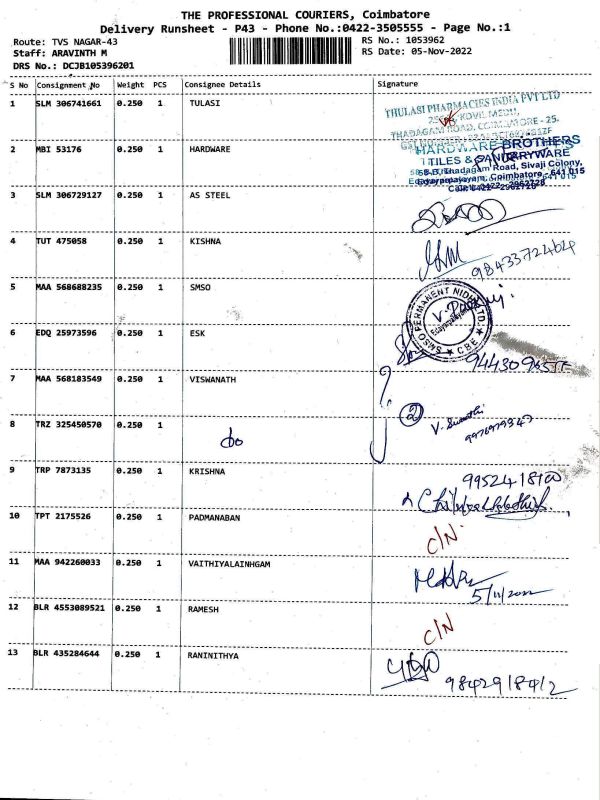 THE PROFESSIONAL COURIERS, Coimbatore
Delivery Runsheet - P43 - Phone No.:0422-3505555 - Page No.:1
Route: TVS NAGAR-43 RS No.: 1053962
Staff: ARAVINTH M RS Date: 05-Nov-2022
DRS No.: DCJB105396201
S No Consignment No Weight PCS Consignee Details Signature
1 SLM 306741661 0.250 1 TULASI
THULASI PHARMACIES INDIA PVT LTD
KOVIL MEDU,
THADAGAM ROAD, COIMBATORE - 25.
2 MBI 53176 0.250 1 HARDWARE
HARDWARE BROTHERS
TILES & SANITARYWARE
Thadagam Road, Sivaji Colony,
Edayarpalayam, Coimbatore - 641 015
Cell: 0422 - 2962728
3 SLM 306729127 0.250 1 AS STEEL
4 TUT 475058 0.250 1 KISHNA
9843372464
5 MAA 568688235 0.250 1 SMSO
SMSO PERMANENT NIDHI LTD.
Edayarpalayam
CBE
6 EDQ 25973596 0.250 1 ESK
7 MAA 568183549 0.250 1 VISWANATH
2
8 TRZ 325450570 0.250 1 do
9976979347
9 TRP 7873135 0.250 1 KRISHNA
9952418100
10 TPT 2175526 0.250 1 PADMANABAN
C/N
11 MAA 942260033 0.250 1 VAITHIYALAINHGAM
5/11/2022
12 BLR 4553089521 0.250 1 RAMESH
C/N
13 BLR 435284644 0.250 1 RANINITHYA
9842918412